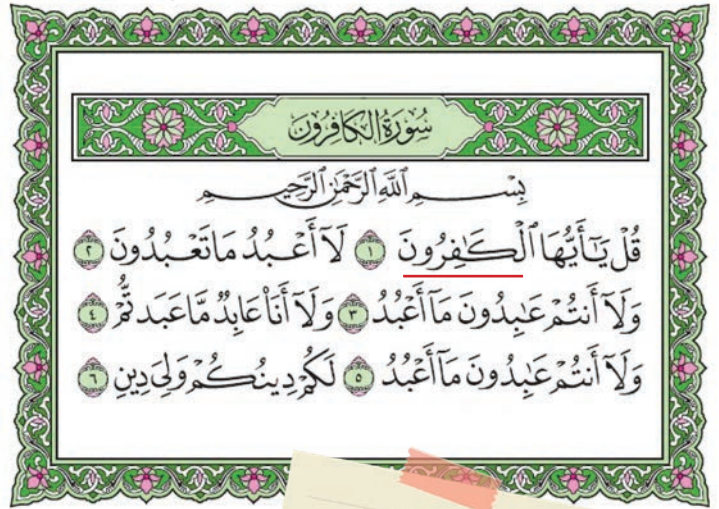 سُورَةُ الكَافِرُونَ
بِسْمِ اللَّهِ الرَّحْمَٰنِ الرَّحِيمِ
قُلْ يَـٰٓأَيُّهَا ٱلْكَـٰفِرُونَ ١ لَآ أَعْبُدُ مَا تَعْبُدُونَ ٢
وَلَآ أَنتُمْ عَـٰبِدُونَ مَآ أَعْبُدُ ٣ وَلَآ أَنَا۠ عَابِدٌ مَّا عَبَدتُّمْ ٤
وَلَآ أَنتُمْ عَـٰبِدُونَ مَآ أَعْبُدُ ٥ لَكُمْ دِينُكُمْ وَلِىَ دِينِ ٦